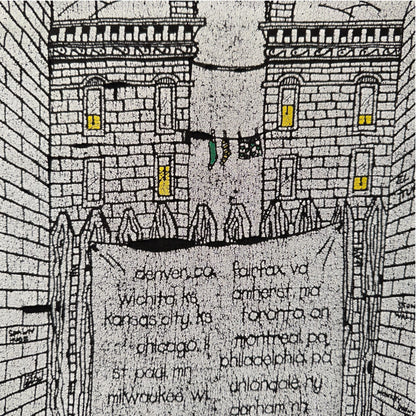 denver, co
wichita, ks
kansas city, ks
chicago, il
st. paul, mn
milwaukee, wi
fairfax, va
amherst, ma
toronto, on
montreal, pq
philadelphia, pa
uniondale, ny